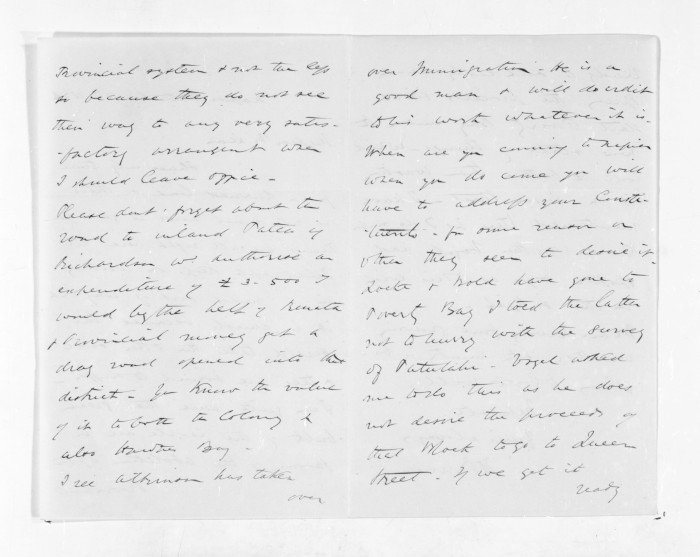 Provincial system & not the less
so because they do not see
their way to any very satis-
-factory arrangent when
I should leave office -
Please dont forget about the
road to inland Patea if
Richardson wd authorise an
expenditure of £3-500 I
would by the help of Renata
& Provincial money get a
dray road opened into the
district - You know the value
of it to both the Colony &
also Hawkes Bay -
I see Atkinson has taken
over
over Immigration - He is a
good man & will do credit
to his work whatever it is -
When are you coming to Napier
when you do come you will
have to address your Consti-
-tuents - for some reason or
other they seem to desire it -
Locke & Bold have gone to
Poverty Bay I told the latter
not to hurry with the survey
of Patutahi - Vogel asked
me to do this as he does
not desire the proceeds of
that Block to go to Queen
Street - If we get it
ready